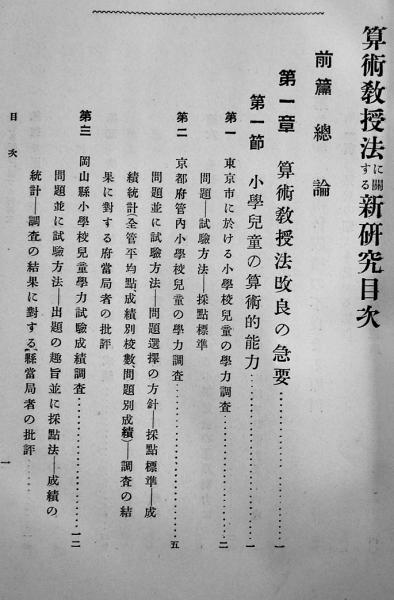 算術敎授法に關する新硏究目次
前篇 總論
第一章 算術敎授法改良の急要…………一
第一節 小學兒童の算術的能力…………一
第一 東京市に於ける小學校兒童の學力調査…………二
問題―試驗方法―採點標準
第二 京都府管內小學校兒童の學力調査…………五
問題並に試驗方法―問題選擇の方針―採點標準―成
績統計(全管平均點、成績別校數問題別成績)―調査の結
果に對する府當局者の批評
第三 岡山縣小學校兒童學力試驗成績調査…………一二
問題並に試驗方法―出題の趣旨並に採點法―成績の
統計―調査の結果に對する縣當局者の批評…………
目次
一